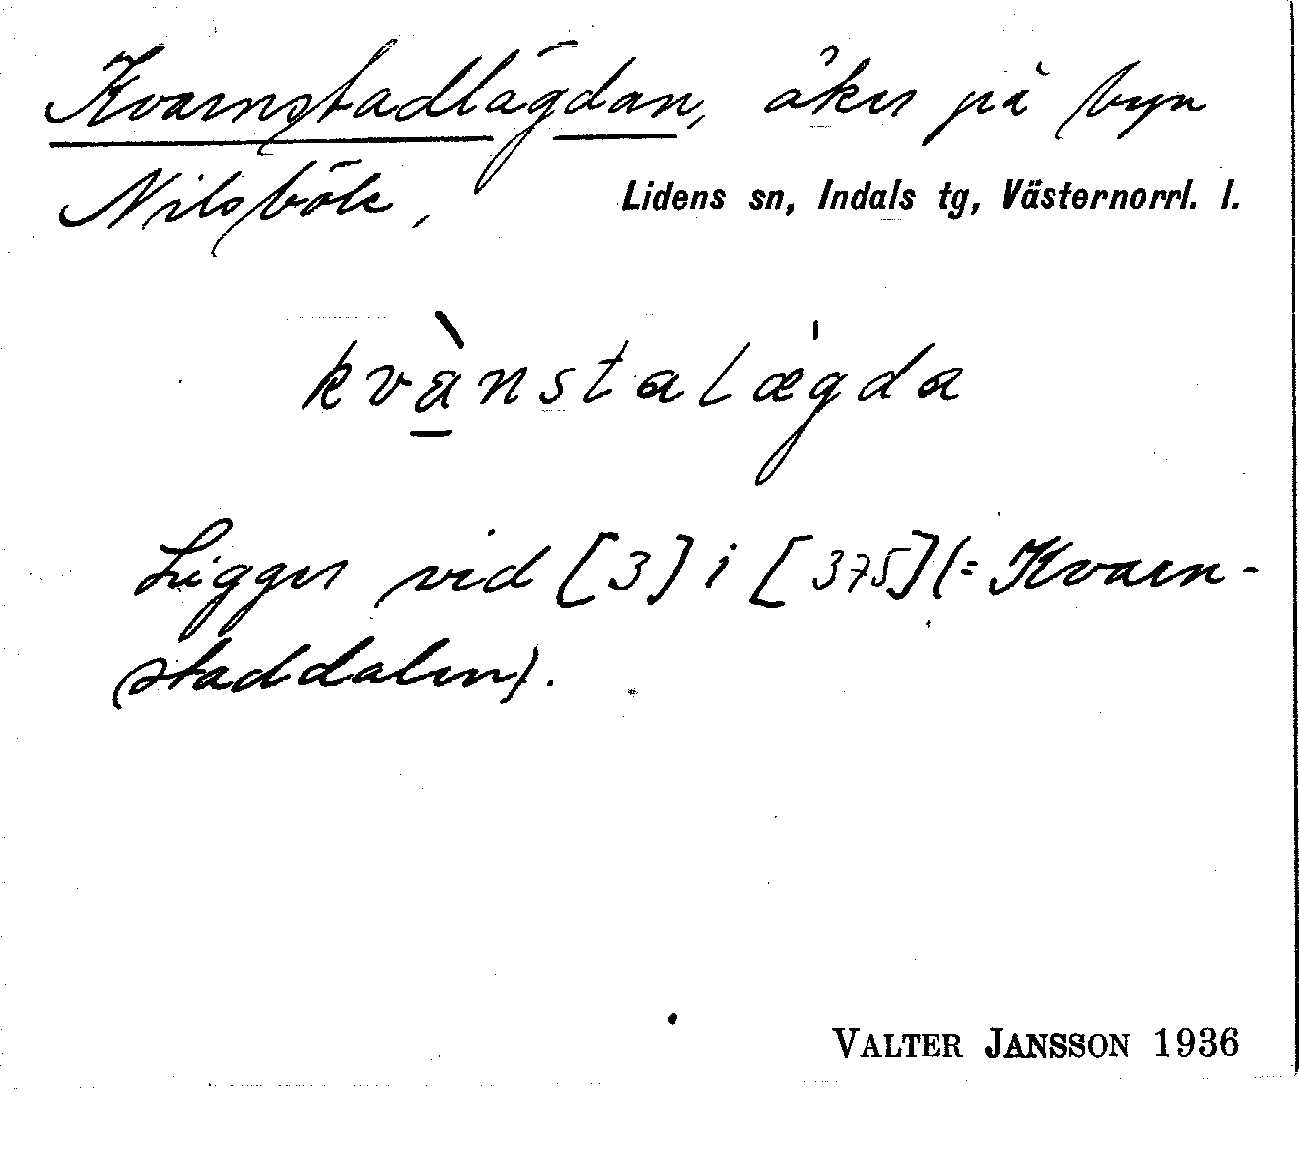 Kvarnstadlägdan, åker på byn
Nilsböle, Lidens sn, Indals tg, Västernorrl. l.
kvànstalægda
Ligger vid [3] i [375] (= Kvarn-
staddalen).
VALTER JANSSON 1936